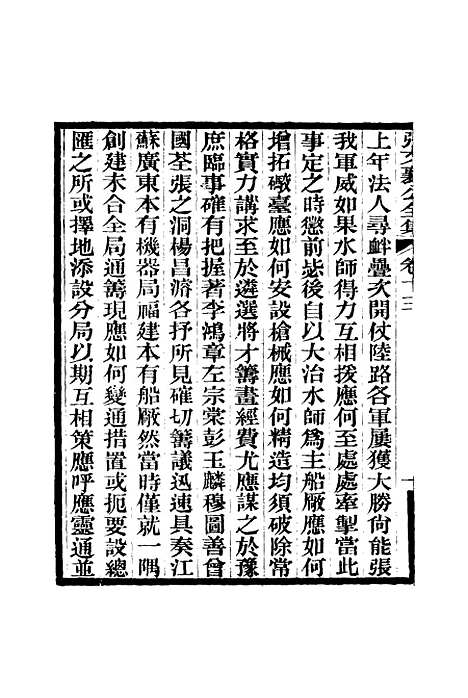 張文襄公全集 卷十三
上年法人尋衅疊次開仗陸路各軍屢獲大勝尙能張
我軍威如果水師得力互相援應何至處處牽掣當此
事定之時懲前毖後自以大治水師爲主船廠應如何
增拓礮臺應如何安設槍械應如何精造均須破除常
格實力講求至於遴選將才籌畫經費尤應謀之於豫
庶臨事確有把握著李鴻章左宗棠彭玉麟穆圖善曾
國荃張之洞楊昌濬各抒所見確切籌議迅速具奏江
蘇廣東本有機器局福建本有船廠然當時僅就一隅
創建未合全局通籌現應如何變通措置或扼要設總
匯之所或擇地添設分局以期互相策應呼應靈通並